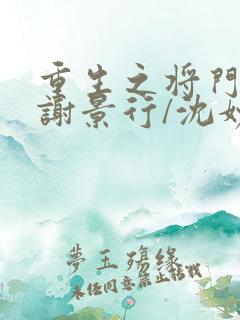 重生之将門
謝景行/沈妙
夢玉殤緣
未经同意禁止转载